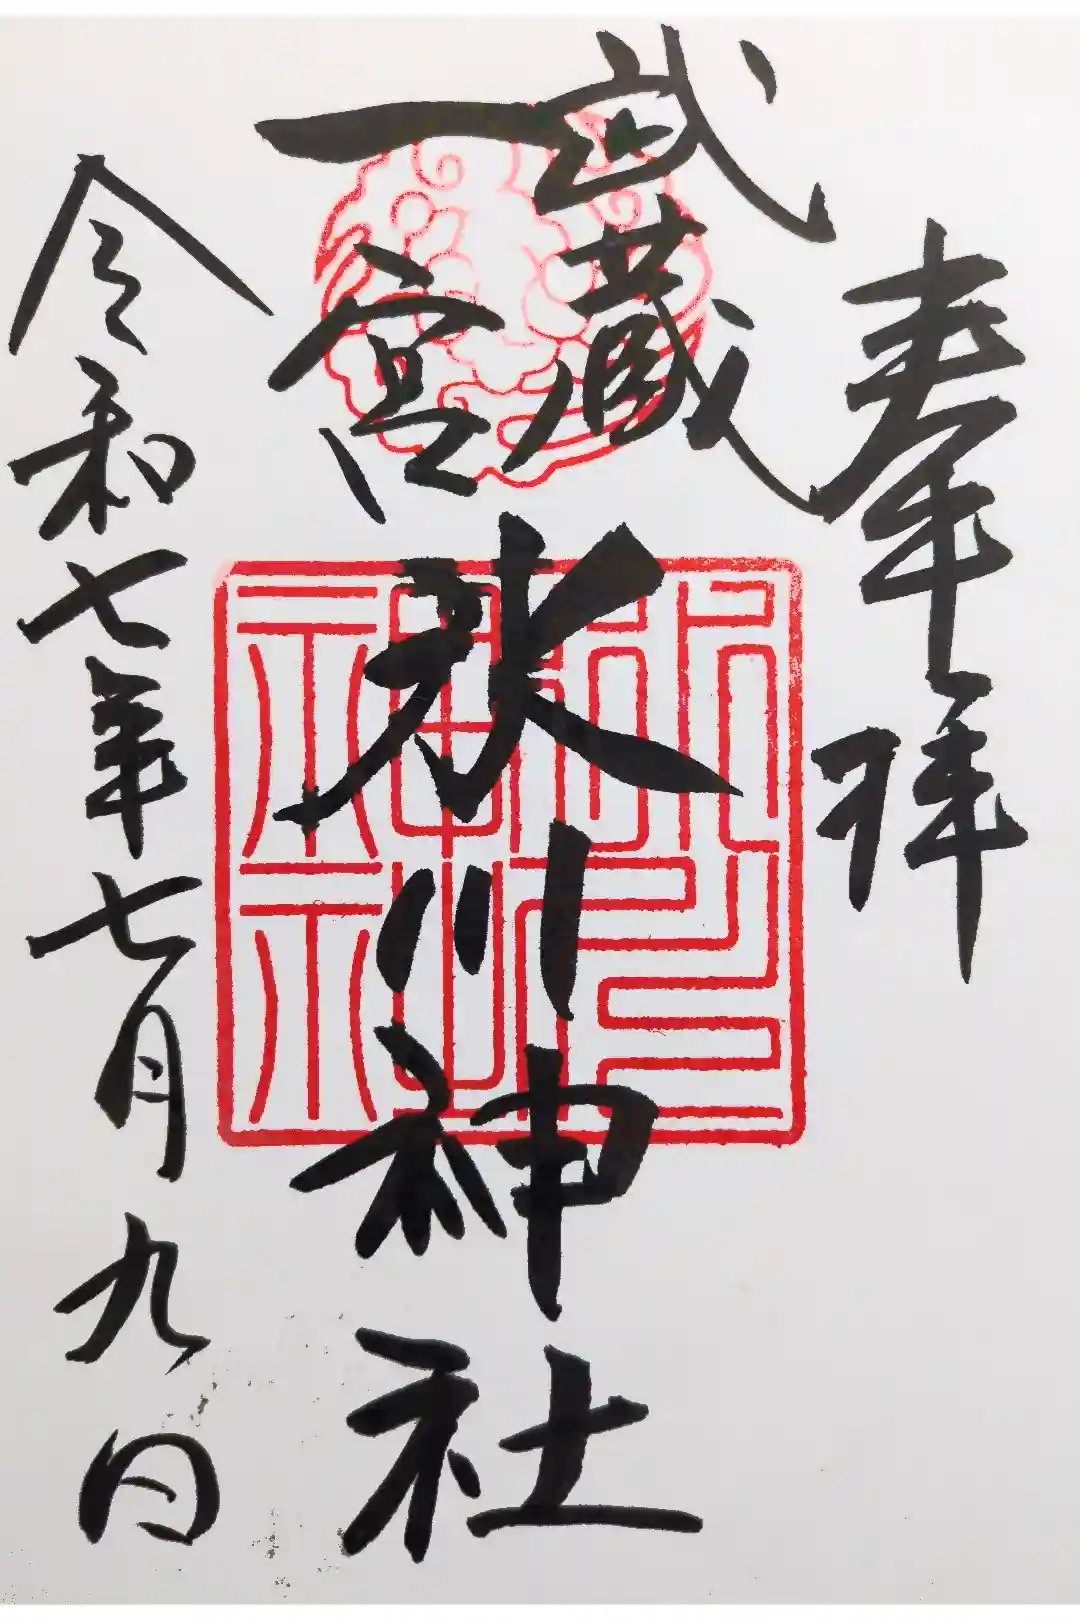 奉拝
武蔵
一宮
氷川神社
令和七年七月九日
氷川神社